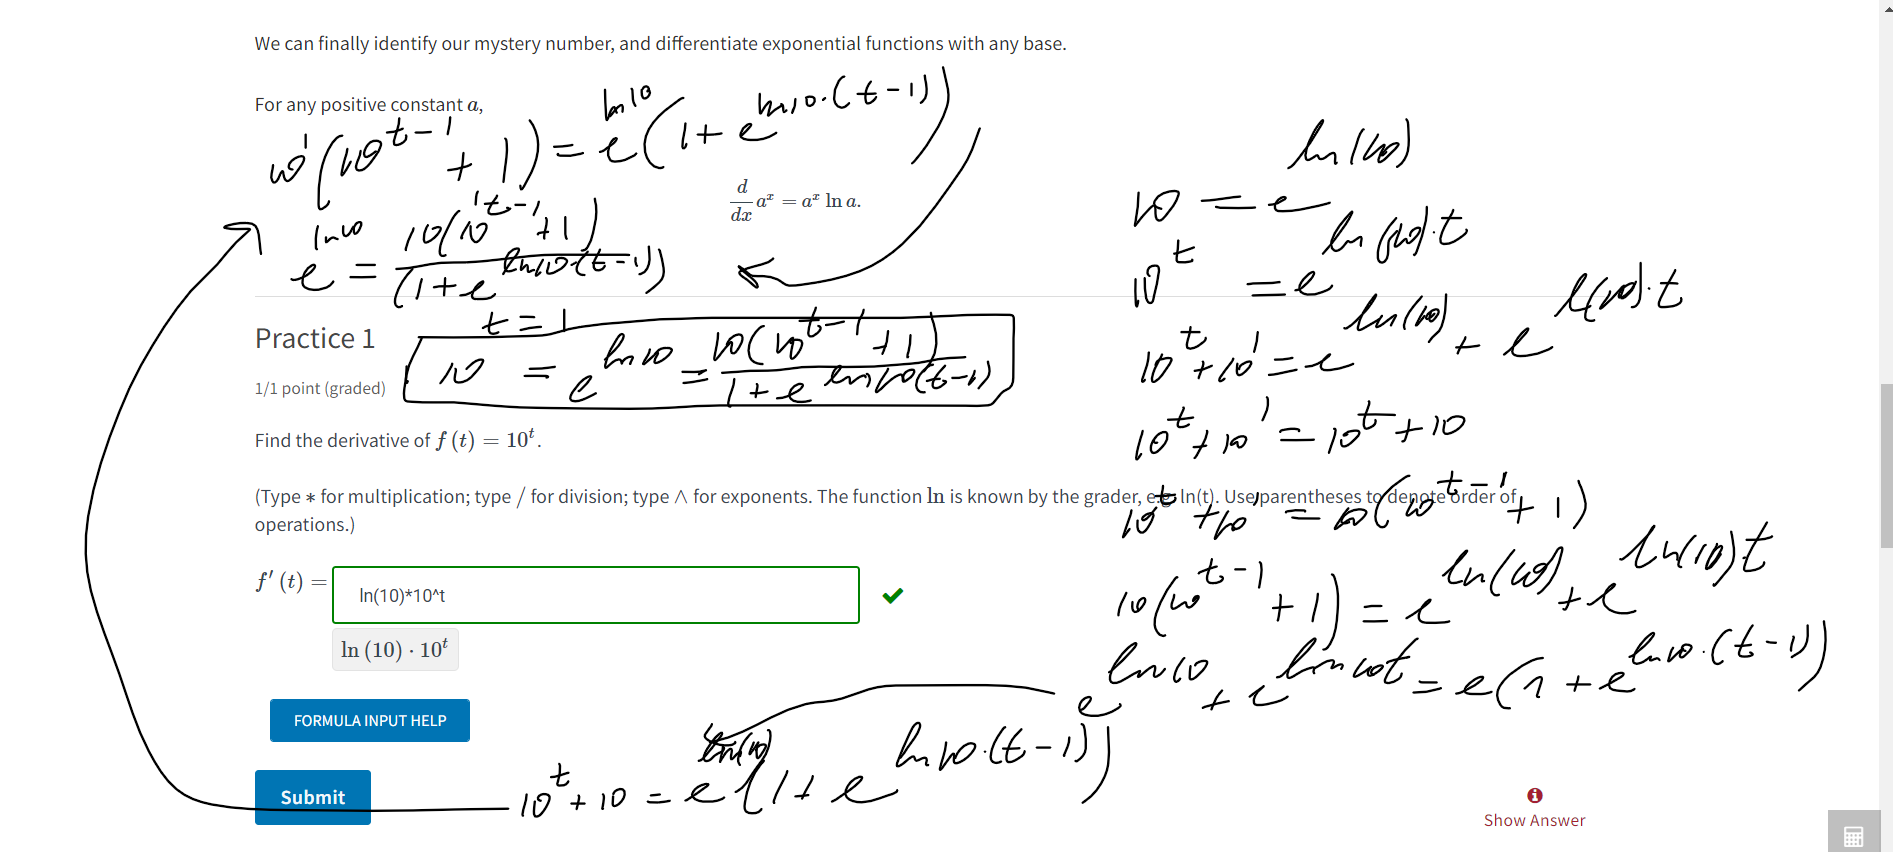 We can finally identify our mystery number, and differentiate exponential functions with any base.
For any positive constant a,
10^1(10^{t-1} + 1) = e^{ln10}(1 + e^{ln10·(t-1)})
d/dx a^x = a^x ln a.
e^{ln10} = 10(10^{t-1} + 1) / (1 + e^{ln10·(t-1)})
t = 1
10 = e^{ln10} = 10(10^{t-1} + 1) / 1 + e^{ln10(t-1)}
Practice 1
1/1 point (graded)
Find the derivative of f (t) = 10^t.
(Type * for multiplication; type / for division; type ∧ for exponents. The function ln is known by the grader, e.g. ln(t). Use parentheses to denote order of
operations.)
f′ (t) =
ln(10)*10^t
ln (10) · 10^t
FORMULA INPUT HELP
Submit
Show Answer
10 = e^{ln(10)}
10^t = e^{ln(10)·t}
10^t + 10^1 = e^{ln(10)} + e^{l(10)·t}
10^t + 10^1 = 10^t + 10
10^t + 10^1 = 10(10^{t-1} + 1)
10(10^{t-1} + 1) = e^{ln(10)} + e^{ln(10)t}
e^{ln10} + e^{ln10t} = e(1 + e^{ln10·(t-1)})
10^t + 10 = e^{ln(10)}(1 + e^{ln10·(t-1)})